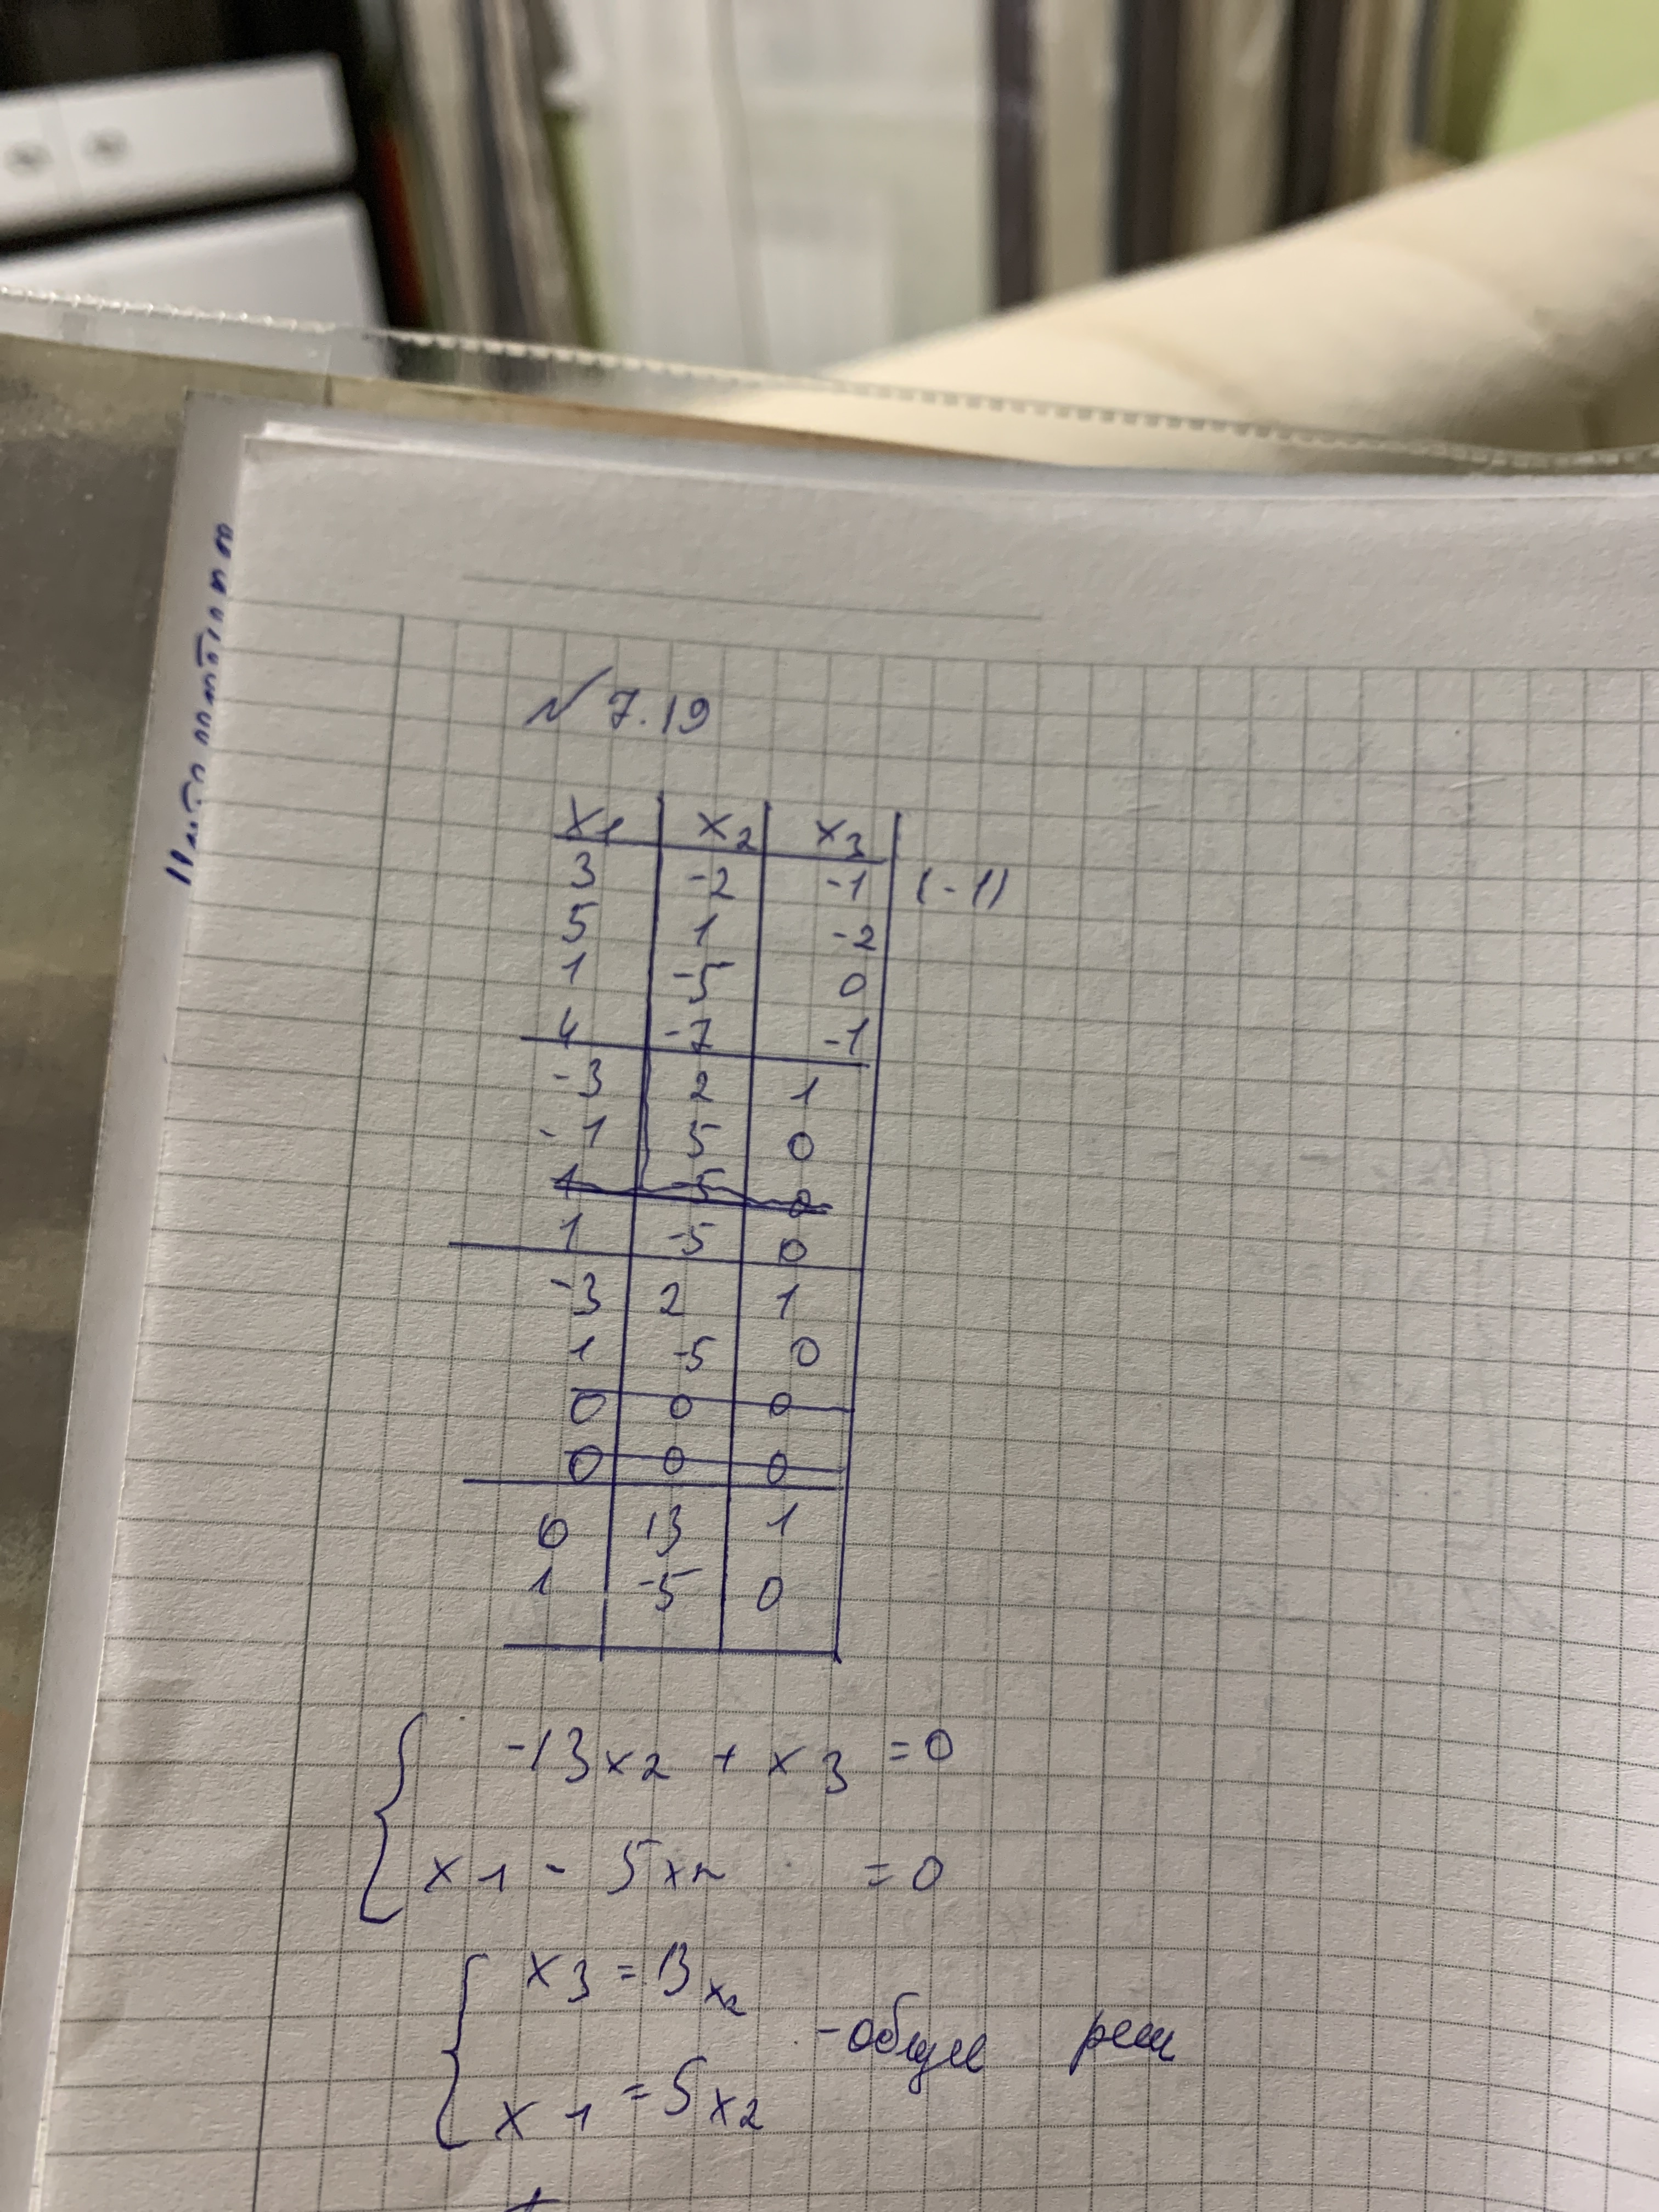 № 7.19
x1 x2 x3
3 -2 -1 (-1)
5 1 -2
1 -5 0
4 -7 -1
-3 2 1
-1 5 0
1 -5 0
1 -5 0
-3 2 1
1 -5 0
0 0 0
0 0 0
0 13 1
1 -5 0
-13x2 + x3 = 0
x1 - 5x2 = 0
x3 = 13x2
x1 = 5x2
- общее реш